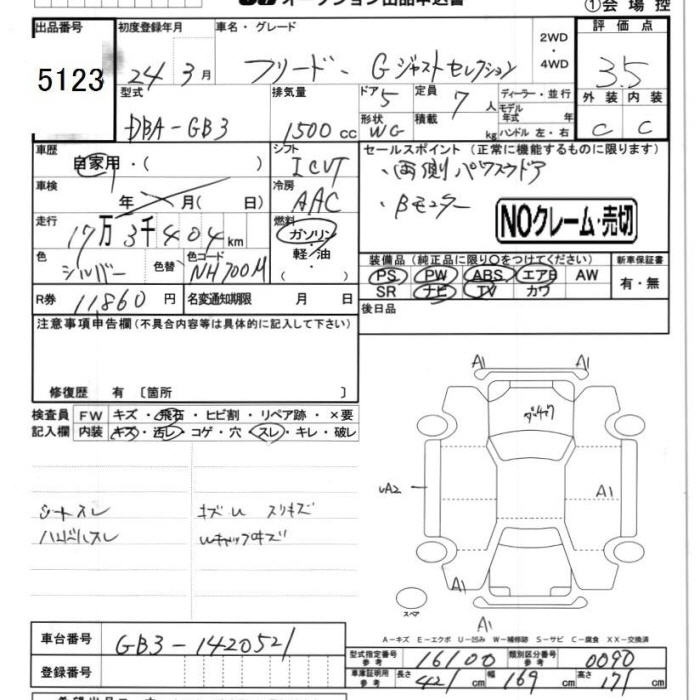 オークション出品申込書
①会場控
出品番号 初度登録年月 車名・グレード 2WD・4WD 評価点
5123 24年3月 フリード、Gジャストセレクション 3.5
型式 排気量 ドア 5 定員 7人 ディーラー・並行 外装 内装
DBA-GB3 1500cc 形状 WG 積載 kg モデル年式 年 ハンドル 左・右 C C
車歴 自家用・( ) シフト ICVT セールスポイント (正常に機能するものに限ります)
・両側パワスラドア
車検 年 月( 日) 冷房 AAC ・Bモニター
NOクレーム・売切
走行 17万3千404km 燃料 ガソリン・軽油・( )
色 シルバー 色替 色コード NH700M
装備品 (純正品に限り○をつけてください) 新車保証書
PS PW ABS エアB AW 有・無
SR ナビ TV カワ
R券 11860円 名変通知期限 月 日
後日品
注意事項申告欄(不具合内容等は具体的に記入して下さい)
修復歴 有 〔箇所 〕
検査員 FW キズ・飛石・ヒビ割・リペア跡・×要
記入欄 内装 キズ・汚レ・コゲ・穴・スレ・キレ・破レ
シートスレ キズU スリキズ
ハンドルスレ Wキャップキズ
A1 A1
UA2 A1
A1
スペア A1
A-キズ E-エクボ U-凹み W-補修跡 S-サビ C-腐食 XX-交換済
車台番号 GB3-1420521
登録番号
型式指定番号 参考 16100 類別区分番号 参考 0090
車庫証明用 参考 長さ 421cm 幅 169cm 高さ 171cm